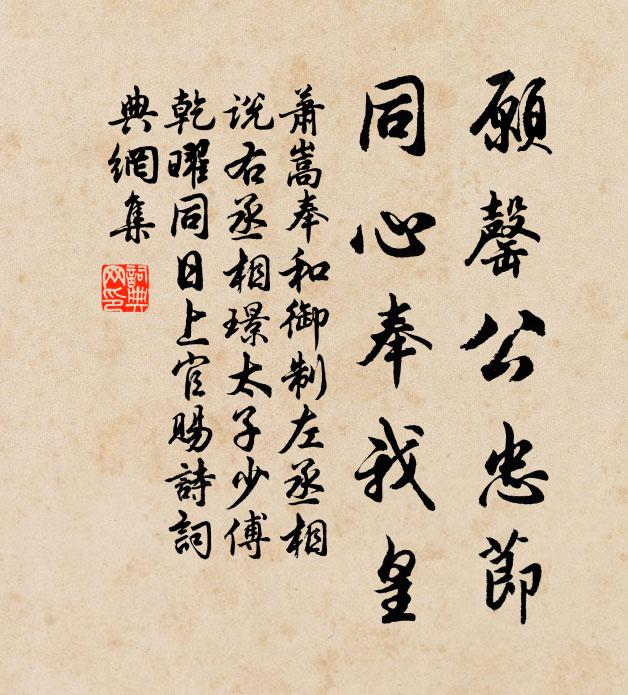 願罄公忠節
同心奉我皇
蕭嵩奉和御制左丞相
说右丞相璟太子少傅
乾曜同日上官賜詩詞
典網集
詞典
网印